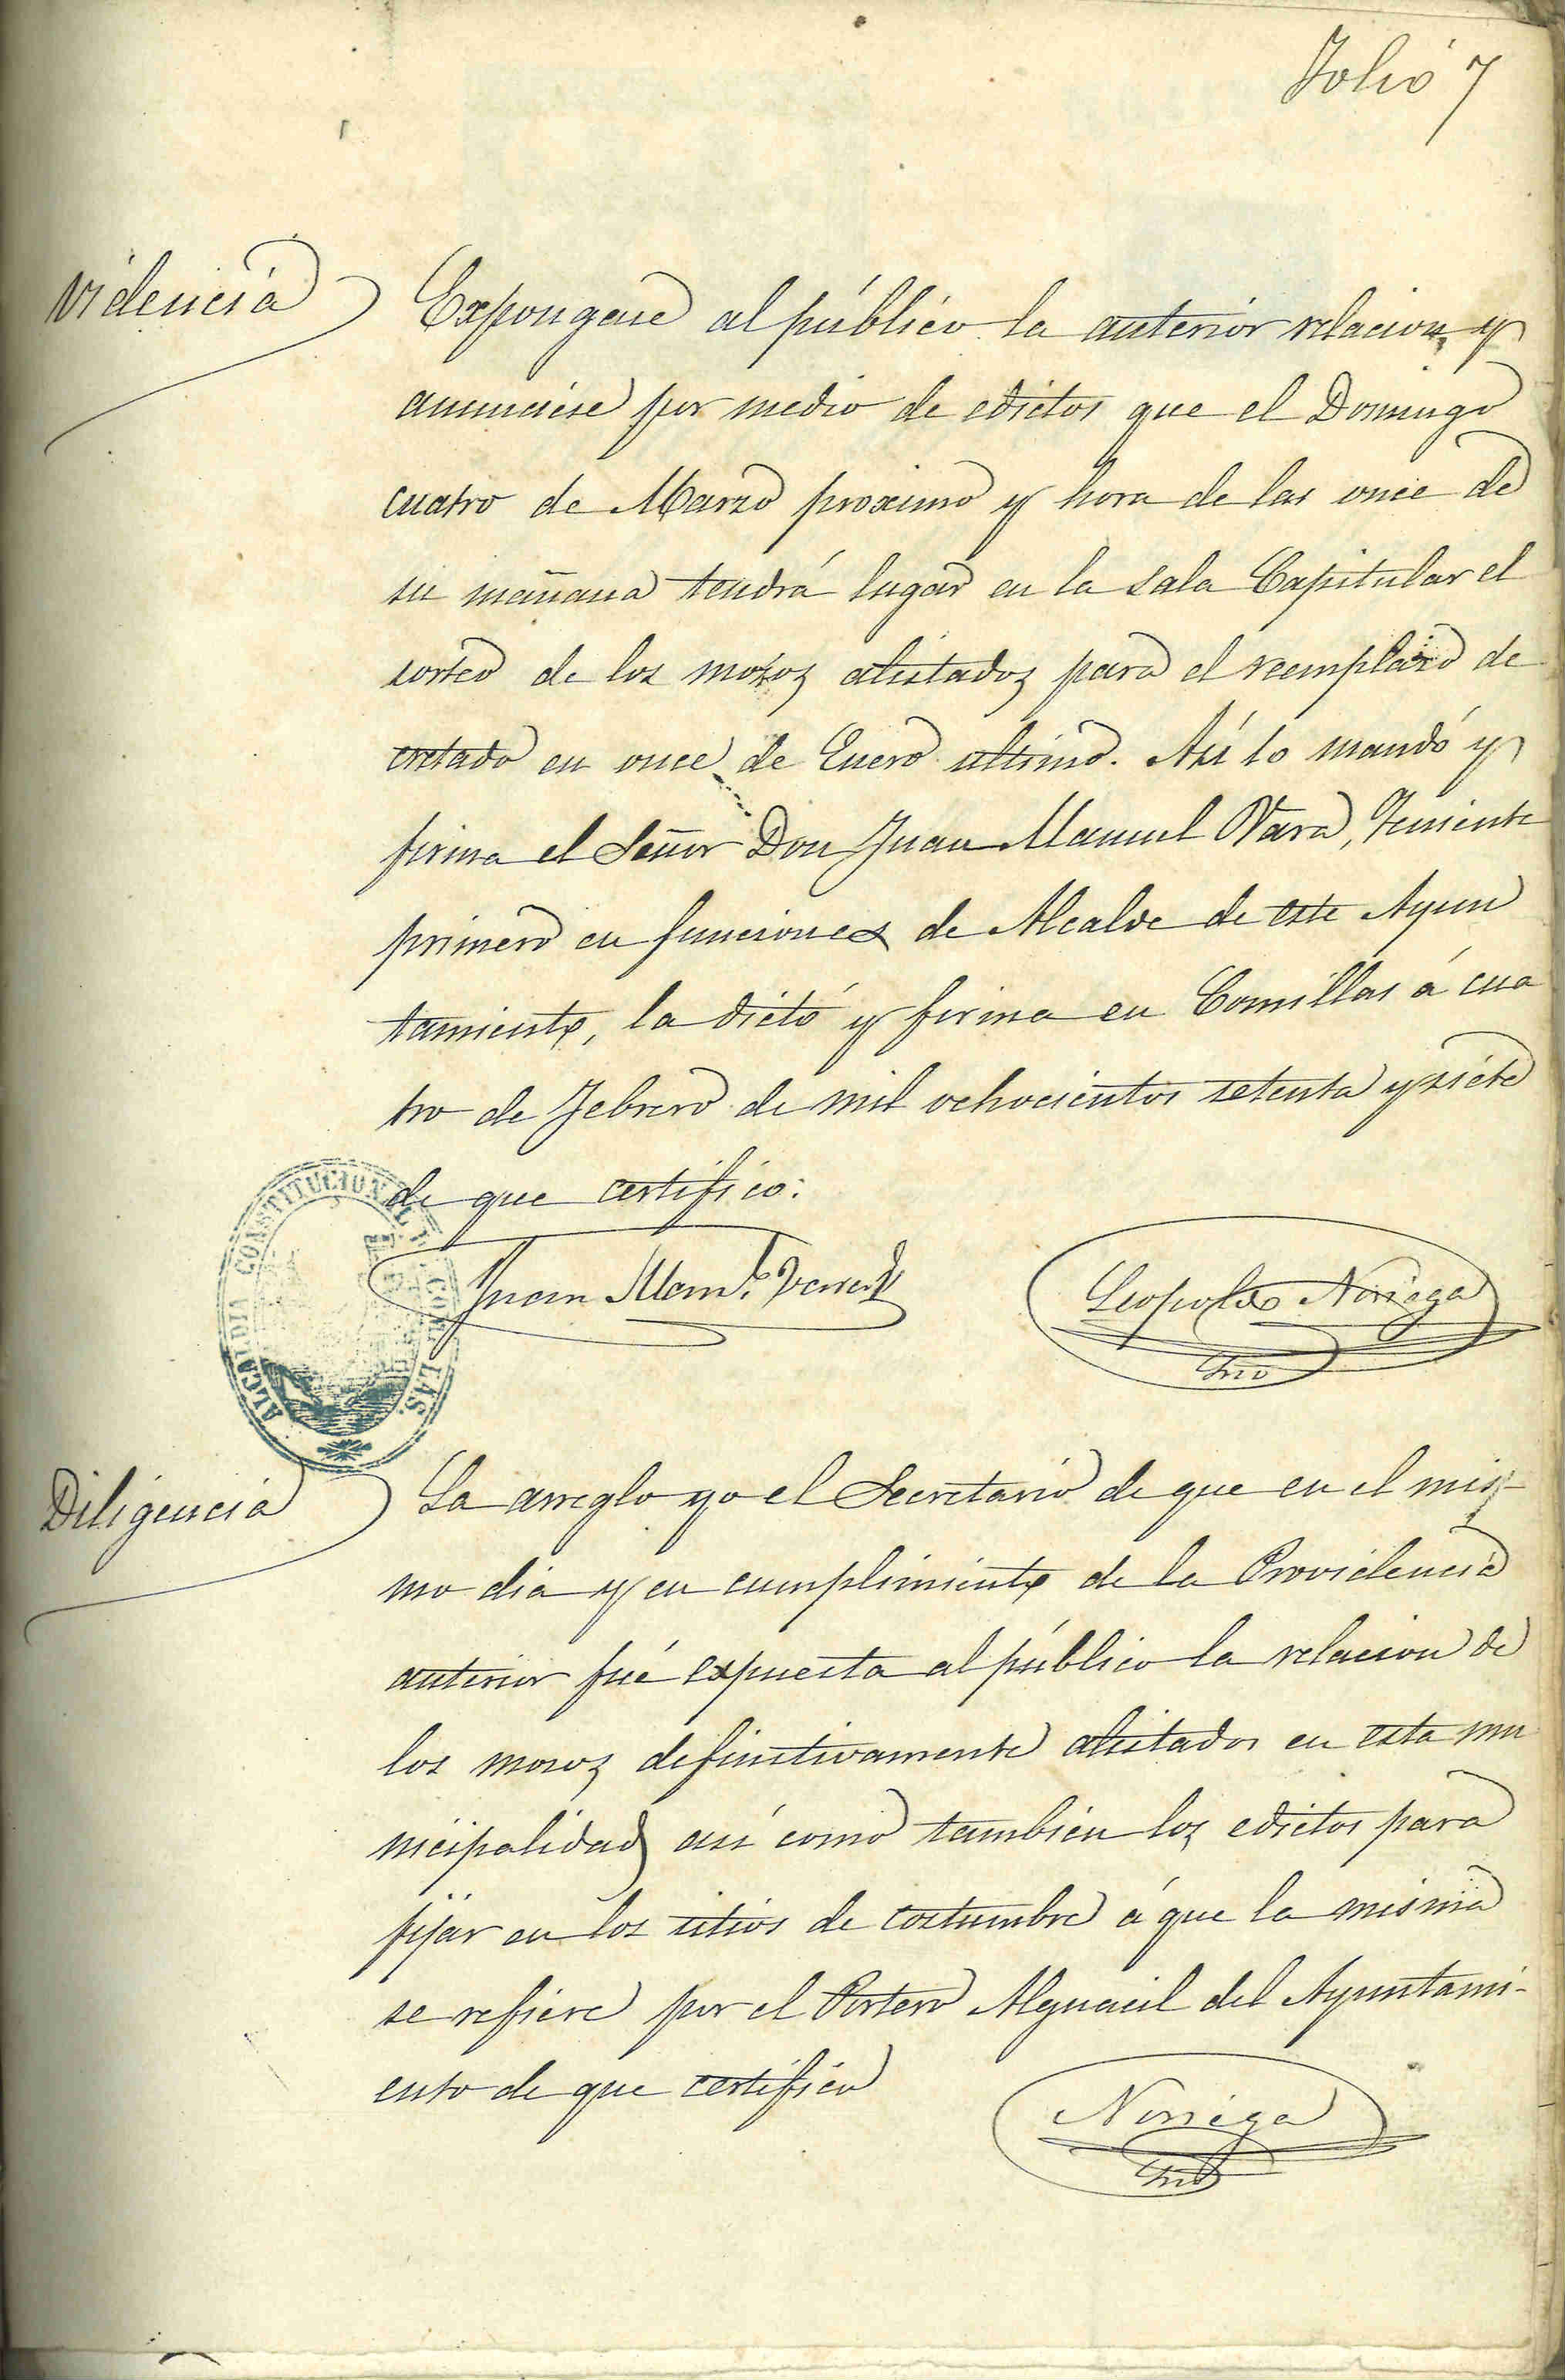 Folio 7
videncia
Expongase al público la anterior relacion, y
anunciese por medio de edictos que el Domingo
cuatro de Marzo proximo y hora de las once de
su mañana tendrá lugar en la Sala Capitular el
sorteo de los mozos alistados para el reemplazo de
cretado en once de Enero ultimo. Así lo mandó y
firma el Señor Don Juan Manuel Vara, Teniente
primero en funciones de Alcalde de este Ayun
tamiento, la dictó y firma en Comillas á cua
tro de Febrero de mil ochocientos setenta y siete
de que certifico:
ALCALDIA CONSTITUCIONAL
Juan Man.l
Leopoldo Noriega
Srio
Diligencia
La arreglo yo el Secretario de que en el mis-
mo dia y en cumplimiento de la Providencia
anterior fué expuesta al público la relacion de
los mozos definitivamente alistados en esta mu
nicipalidad así como tambien los edictos para
fijar en los sitios de costumbre á que la misma
se refiere por el Portero Alguacil del Ayuntami-
ento de que certifico
Noriega
Srio